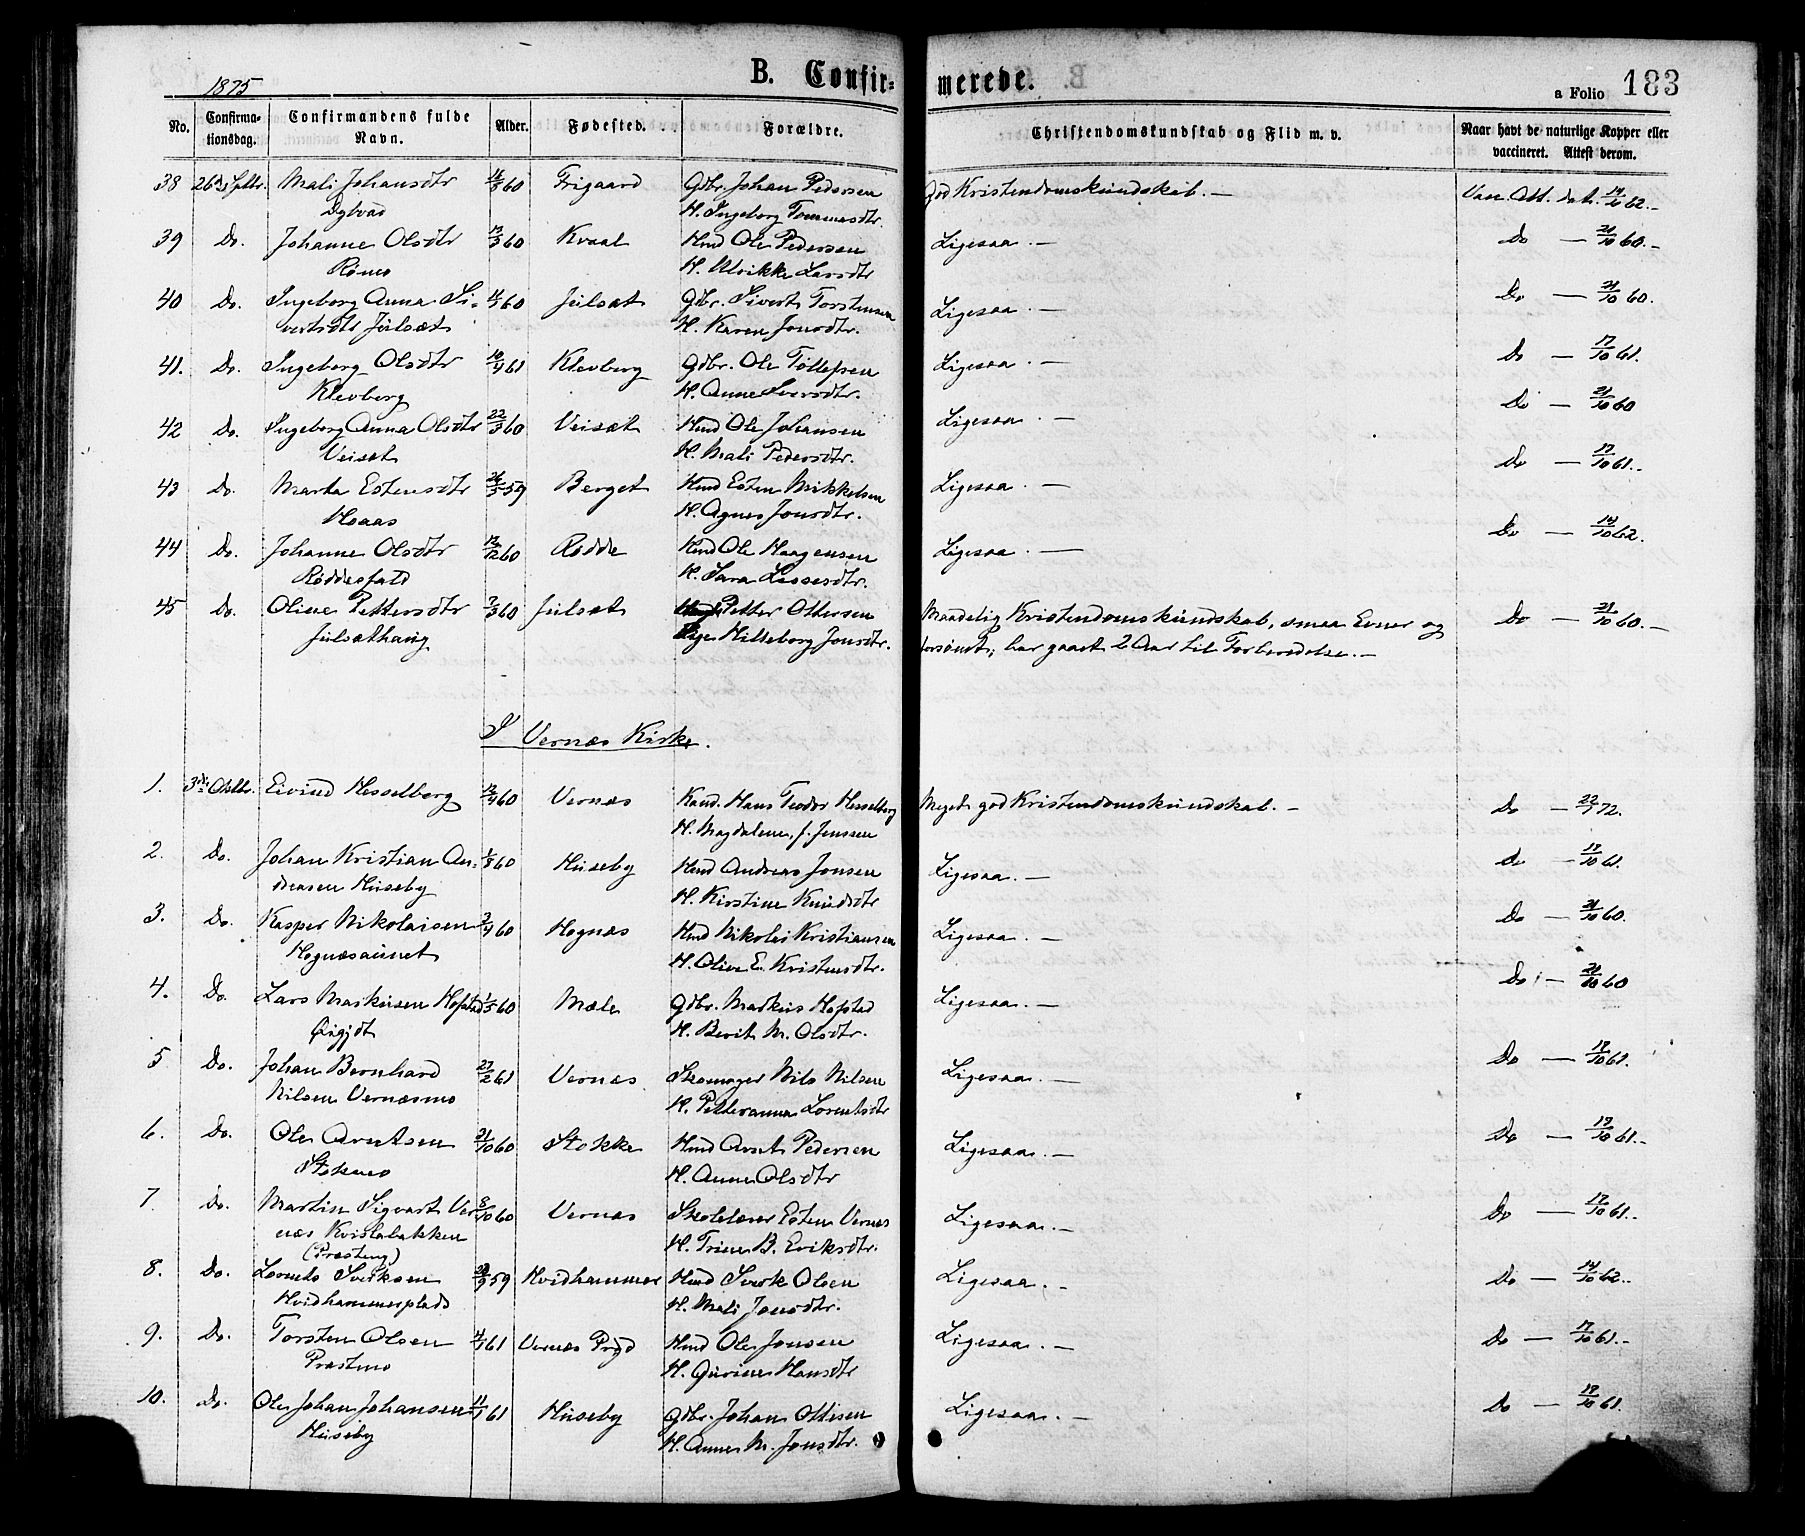 1875
B. Confir-
merede.
a Folio 183
No. Confirma-tionsdag. Confirmandens fulde Navn. Alder. Fødested. Forældre. Christendomskundskab og Flid m. v. Naar havt de naturlige Kopper eller vaccineret. Attest derom.
38 26de Septbr. Mali Johansdtr 60 Frigaard Gdbr. Johan Pedersen God Kristendomskundskab. — Vacc. Att. dat. 14/10 62. —
Dybvad H. Ingeborg Tommesdtr.
39 Do. Johanne Olsdtr 13/3 60 Kvaal Hmd Ole Pedersen Ligesaa. — Do — 21/10 60. —
Rømo H. Ulrikke Larsdtr
40 Do. Ingeborg Anna Si- 60 Julsæt Gdbr. Sivert Torstensen Ligesaa. — Do — 21/10 60.
vertsdtr Julsæt H. Karen Jonsdtr.
41. Do. Ingeborg Olsdtr 10/4 61 Klevberg Gdbr. Ole Tollefsen Ligesaa. — Do — 17/10 61.
Klevberg H. Anne Iversdtr.
42 Do. Ingeborg Anna Olsdtr 22/3 60 Veisæt Hmd Ole Johansen Ligesaa. — Do — 21/10 60
Veisæt H. Mali Pedersdtr.
43 Do. Marta Estensdtr 26/5 59 Berget Hmd Esten Mikkelsen Ligesaa. — Do — 17/10 61. —
Moaas H. Agnes Jonsdtr.
44 Do. Johanne Olsdtr 12/12 60 Rødde Hmd Ole Haagensen Ligesaa. — Do — 14/10 62.
Røddesfald H. Sara Lassesdtr.
45 Do. Oline Pettersdtr 7/3 60 Julsæt Petter Ottersen Maadelig Kristendomskundskab, smaa Evner og Do — 21/10 60. —
Julsæthaug Pige Hilleborg Jonsdtr. forsømt; har gaaet 2 Aar til Forberedelse. —
I Vernæs Kirke.
1. 3die Oktbr. Eivind Hesselberg 12/4 60 Vernæs Kand. Hans Teodor Hesselberg Meget god Kristendomskundskab. — Do — 22/7 72.
H. Magdalene, f. Jenssen
2. Do. Johan Kristian An- 60 Huseby Hmd Andreas Jonsen Ligesaa. — Do — 17/10 61.
dreasen Huseby H. Kirstine Knudsdtr
3. Do. Kasper Nikolaisen 3/4 60 Hognæs Hmd Nikolai Kristiansen Ligesaa. — Do — 21/10 60.
Hognæsaunet H. Oline E. Kristensdtr.
4. Do. Lars Markusen Hofstad 1/5 60 Mæle Gdbr. Markus Hofstad Ligesaa. — Do — 21/10 60
H. Berit M. Olsdtr.
5 Do. Johan Bernhard 27/2 61 Vernæs Skomager Nils Nilsen Ligesaa. — Do — 17/10 61.
Nilsen Vernæsmo H. Petteranna Lorentsdtr
6. Do. Ole Arntsen 21/10 60 Stokke Hmd Arnt Pedersen Ligesaa. — Do — 17/10 61. —
Stokmo H. Anne Olsdtr
7 Do. Martin Sigvart Ver- 8/10 60 Vernæs Skolelærer Esten Vernæs Ligesaa. — Do — 17/10 61. —
næs Kvislabakken H. Trine B. Eriksdtr.
(Præsteng)
8. Do. Lornts Sverksen 59 Hvidhammer Hmd Sverk Olsen Ligesaa. — Do — 14/10 62. —
Hvidhammerplads H. Mali Jonsdtr.
9. Do. Torsten Olsen 61 Vernæs Prgd Hmd Ole Jonsen Ligesaa. — Do — 17/10 61. —
Præstmo H. Gurine Hansdtr
10. Do. Ole Johan Johansen 61 Huseby Gdbr. Johan Ottesen Ligesaa. — Do — 17/10 61.
Huseby H. Anne M. Jonsdtr.